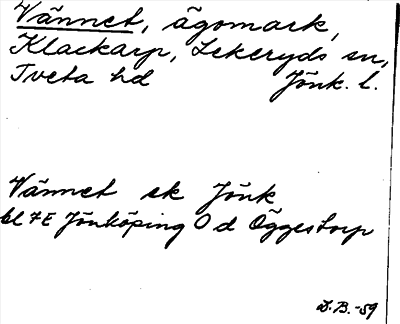 Vännet, ägomark,
Klackarp, Lekeryds sn,
Tveta hd Jönk. l.
Vännet ek Jönk
bl 7E Jönköping O d Öggestorp
D.B.-59